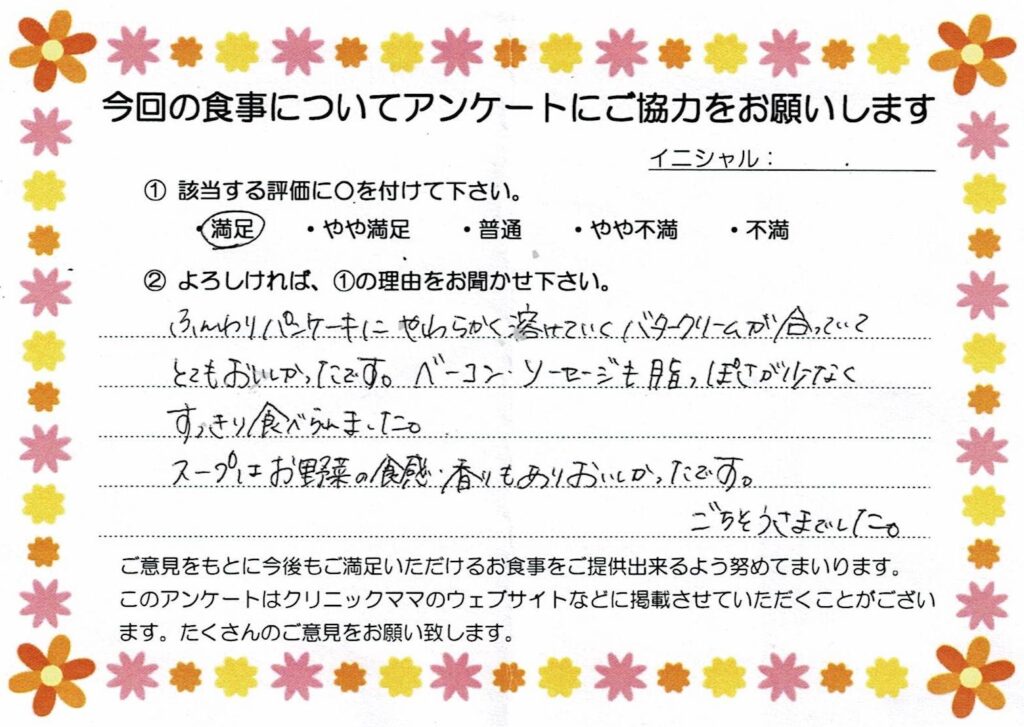 今回の食事についてアンケートにご協力をお願いします
イニシャル：　　　.
① 該当する評価に○を付けて下さい。
・満足　・やや満足　・普通　・やや不満　・不満
② よろしければ、①の理由をお聞かせ下さい。
ふんわりパンケーキにやわらかく溶けていくバタークリームが合っていて
とてもおいしかったです。ベーコン・ソーセージも脂っぽさが少なく
すっきり食べられました。
スープはお野菜の食感・香りもありおいしかったです。
ごちそうさまでした。
ご意見をもとに今後もご満足いただけるお食事をご提供出来るよう努めてまいります。
このアンケートはクリニックママのウェブサイトなどに掲載させていただくことがござい
ます。たくさんのご意見をお願い致します。